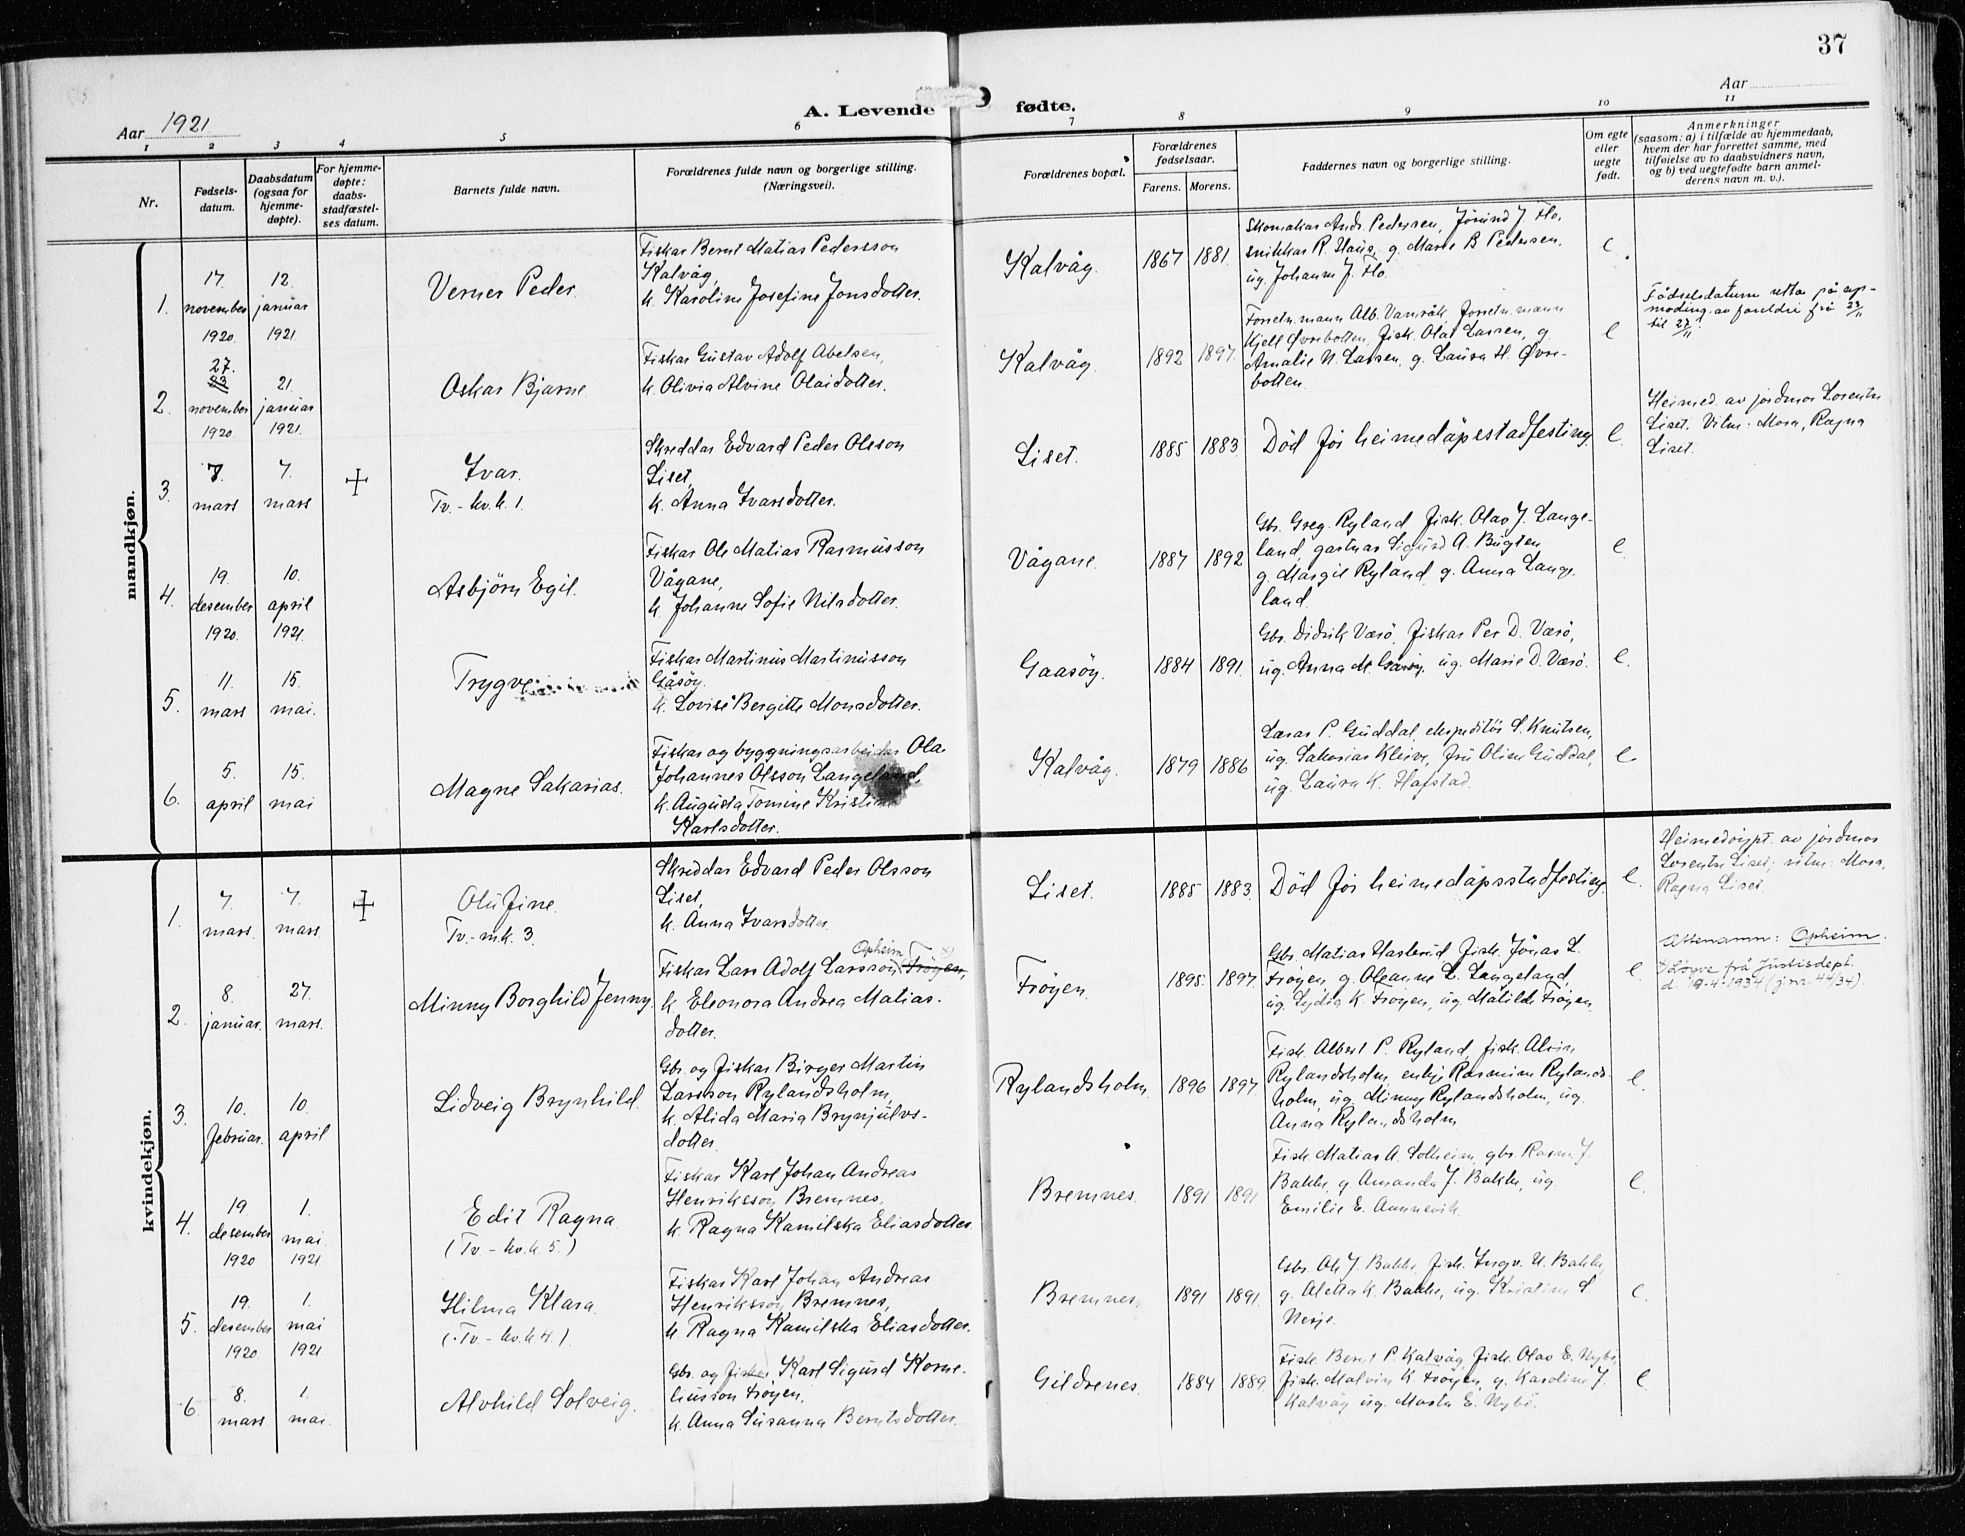 37
Aar 1921
A. Levende fødte.
Aar
1 2 3 4 5 6 7 8 9 10 11
Nr.
Fødsels-
datum.
Daabsdatum
(ogsaa for
hjemme-
døpte).
For hjemme-
døpte:
daabs-
stadfæstel-
ses datum.
Barnets fulde navn.
Forældrenes fulde navn og borgerlige stilling.
(Næringsvei).
Forældrenes bopæl.
Forældrenes
fødselsaar.
Farens. Morens.
Faddernes navn og borgerlige stilling.
Om egte
eller
uegte
født.
Anmerkninger
(saasom: a) i tilfælde av hjemmedaab,
hvem der har forrettet samme, med
tilføielse av to daabsvidners navn,
og b) ved uegtefødte barn anmel-
derens navn m. v.).
mandkjøn.
1.
17.
november
1920.
12.
januar
1921
Verner Peder.
Fiskar Bernt Matias Pedersson
Kalvåg,
k. Karoline Josefine Jonsdotter.
Kalvåg.
1867 1881.
Skomakar Andr. Pedersen, Jörund J. Flo,
snikkar R. Haug, g. Marie B. Pedersen,
ug. Johanne J. Flo.
e
2.
27.
23
november
1920.
21
januar
1921.
Oskar Bjarne
Fiskar Gustav Adolf Abelsen,
k. Olivia Alvine Olaidotter.
Kalvåg.
1892 1897.
Forretn.mann Alb. Vamråk, forretn.mann
Kjell Øvrebotten, fisk. Olai Larsen, g
Amalie N. Larsen, g. Laura H. Øvre-
botten.
e
Födselsdatum retta på op-
moding av foreldri frå 23/11
til 27/11.
3.
7.
mars
7.
mars
Ivar.
Tv. - kv.k. 1.
Skreddar Edvard Peder Olsson
Liset,
k. Anna Ivarsdotter.
Liset.
1885 1883.
Död för heimedåpsstadfesting.
e.
Heimed. av jordmor Lorentse
Liset. Vitn.: Mora, Ragna
Liset.
4.
19.
desember
1920.
10.
april
1921.
Asbjörn Egil.
Fiskar Ole Matias Rasmusson
Vågane,
k. Johanne Sofie Nilsdotter.
Vågane.
1887 1892
Gbr. Greg. Ryland, fisk. Olav J. Lange-
land, gartnar Sigurd A. Bugten
g. Margit Ryland, g. Anna Lange-
land.
e.
5.
11.
mars
15.
mai.
Trygve
Fiskar Martinus Martinusson
Gåsöy.
k. Lovise Bergitte Monsdotter.
Gaasöy.
1884 1891.
Gbr. Didrik Værö, fiskar Per D. Værö,
ug. Anna M. Gåsöy, ug. Marie D. Værö.
e.
6.
5.
april
15.
mai
Magne Sakarias.
Fiskar og byggningsarbeidar Ola
Johannes Olsson Langeland,
k. Augusta Tomine Kristine
Karlsdotter.
Kalvåg.
1879 1886
Lærar P. Guddal, ekspeditör S. Knutsen,
ug. Sakarias Kleive, fru Oline Guddal,
ug. Laura K. Hafstad.
e.
kvindekjøn.
1.
7.
mars.
7.
mars.
Olufine.
Tv. - m.k. 3.
Skreddar Edvard Peder Olsson
Liset,
k. Anna Ivarsdotter.
Liset.
1885 1883.
Död för heimedåpsstadfesting.
e.
Heimedöypt. av jordmor
Lorentse Liset; vitne: Mora,
Ragna Liset.
2.
8.
januar.
27.
mars.
Minny Borghild Jenny.
Opheim x)
Fiskar Lars Adolf Larsson Fröyen,
k. Eleonora Andrea Matias-
dotter.
Fröyen.
1895. 1897.
Gbr. Matias Hasterud, fisk. Jonas L.
Fröyen, g. Oleanne L. Langeland,
ug. Lydia K. Fröyen, ug. Matilde Fröyen.
e.
Ættenamn: Opheim.
x) Löyve frå Justisdept.
d. 19-4-1934 (j.nr. 44/34).
3.
10.
februar.
10.
april
Lidveig Brynhild.
Gbr. og fiskar Birger Martin
Larsson Rylandsholm,
k. Alida Maria Brynjulvs-
dotter.
Rylandsholm.
1896 1897
Fisk. Albert P. Ryland, fisk. Alvin
Rylandsholm, enkje Rasmine Rylands-
holm, ug. Minny Rylandsholm, ug.
Anna Rylandsholm
e.
4.
19.
desember
1920
1.
mai.
1921
Edit Ragna
(Tv - kv.k 5.)
Fiskar Karl Johan Andreas
Henriksson Bremnes,
k. Ragna Kamilska Eliasdotter.
Bremnes.
1891 1891
Fisk. Matias A. Solheim, gbr. Rasm. J.
Bakke, g. Amanda J. Bakke, ug.
Emilie E. Aunnevik.
e.
5.
19.
desember
1920
1.
mai
1921.
Hilma Klara.
(Tv - kv.k 4.)
Fiskar Karl Johan Andreas
Henriksson Bremnes,
k. Ragna Kamilska Eliasdotter.
Bremnes.
1891 1891.
Gbr. Ole J. Bakke, fisk. Ingv. N. Bakke,
g. Aletta K. Bakke, ug. Kristine S.
Nesje.
e.
6.
8.
mars
1.
mai.
Alvhild Solveig.
Gbr. og fiskar Karl Sigurd Korne-
liusson Fröyen,
k. Anna Susanna Berntsdotter.
Gildrenes.
1884 1889.
Fisk. Bernt P. Kalvåg, fisk. Olav E. Nybö,
fisk. Malvin K. Fröyen, g. Karoline J.
Kalvåg, ug. Marta E. Nybö.
e.